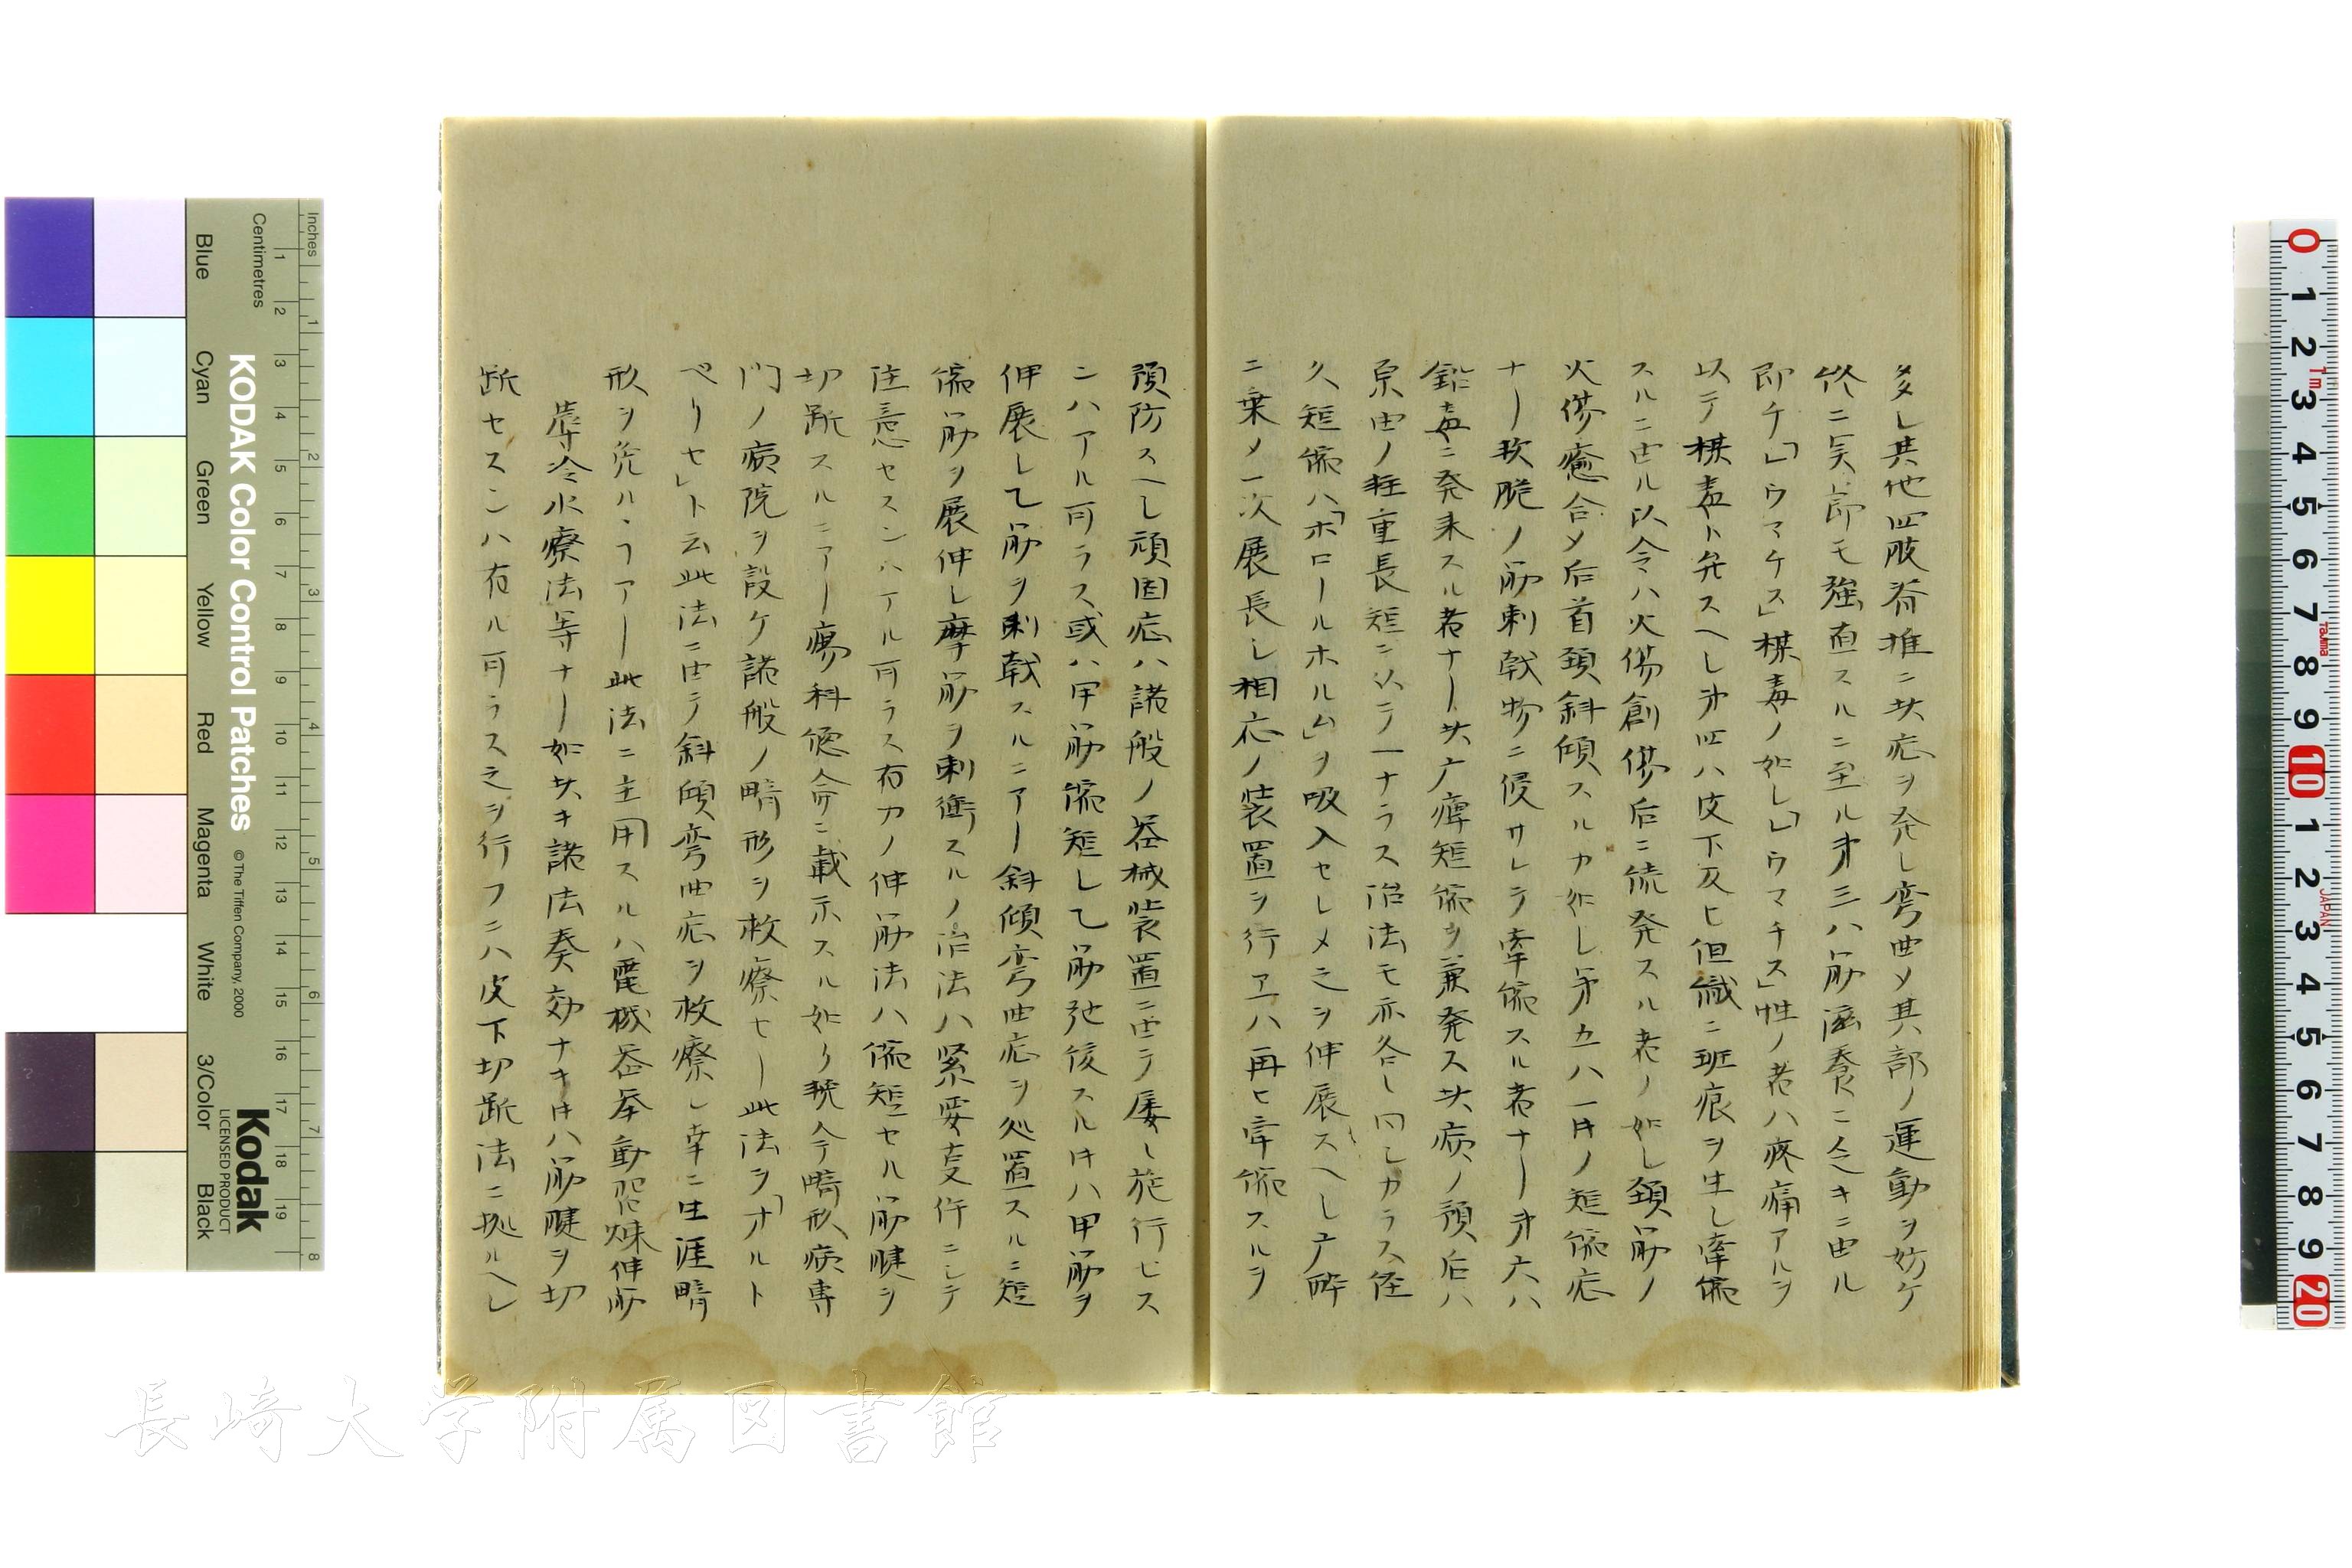 多シ其他四肢脊推ニ此症ヲ発シ弯曲メ其部ノ運動ヲ妨ケ
終ニ関節モ強直スルニ至ル第三ハ筋滋養ニ乏キニ由ル
即チ「レウマチス」楳毒ノ如シ「レウマチス」性ノ者ハ疼痛アルヲ
以テ楳毒ト弁スヘシ第四ハ皮下及ヒ組織ニ斑痕ヲ生シ牽縮
スルニ由ル仮令ハ火傷創傷后ニ続発スル者ノ如シ頚筋ノ
火傷癒合メ后首頚斜傾スルカ如シ第五ハ一時ノ短縮症
ナー攷脆ノ筋刺戟物ニ侵サレテ牽縮スル者ナー第六ハ
鉛毒ニ発来スル者ナー此亠痺短縮ヲ兼発ス此病ノ預后ハ
原由ノ軽重長短ニ以テ一ナラス治法モ亦各シ同シカラス径
久短縮ハ「ホロールホルム」ヲ吸入セシメ之ヲ伸展スヘシ亠酔
ニ乗メ一次展長シ相応ノ装置ヲ行ヱハ再ヒ牽縮スルヲ
預防スヘシ頑固症ハ諸般ノ器械装置ニ由テ屡シ施行セス
ンハアル可ラス或ハ甲筋縮短シ乙筋弛後スル时ハ甲筋ヲ
伸展シ乙筋ヲ刺戟スルニアー斜傾弯曲症ヲ処置スルニ短
縮筋ヲ展伸シ摩筋ヲ刺衝スルノ治法ハ緊要支件ニシテ
注意セスンハアル可ラス有力ノ伸筋法ハ縮短セル筋腱ヲ
切断スルニアー瘍科儘斎ニ載示スル如り輓今畸形病専
門ノ病院ヲ設ケ諸般ノ畸形ヲ救療セー此法ヲ「オルト
ペリセ」ト云此法ニ由テ斜傾弯曲症ヲ救療シ幸ニ生涯畸
形ヲ免ルヽヿアー此法ニ主用スルハ電機器挙動習煉伸筋
蓐冷水療法等ナー如此キ諸法奏効ナキ时ハ筋腱ヲ切
断セスンハ有ル可ラス之ヲ行フニハ皮下切断法ニ拠ルヘシ
KODAK Color Control Patches © The Tiffen Company, 2000
Kodak
LICENSED PRODUCT
Inches
Centimetres
Blue Cyan Green Yellow Red Magenta White 3/Color Black
長崎大学附属図書館